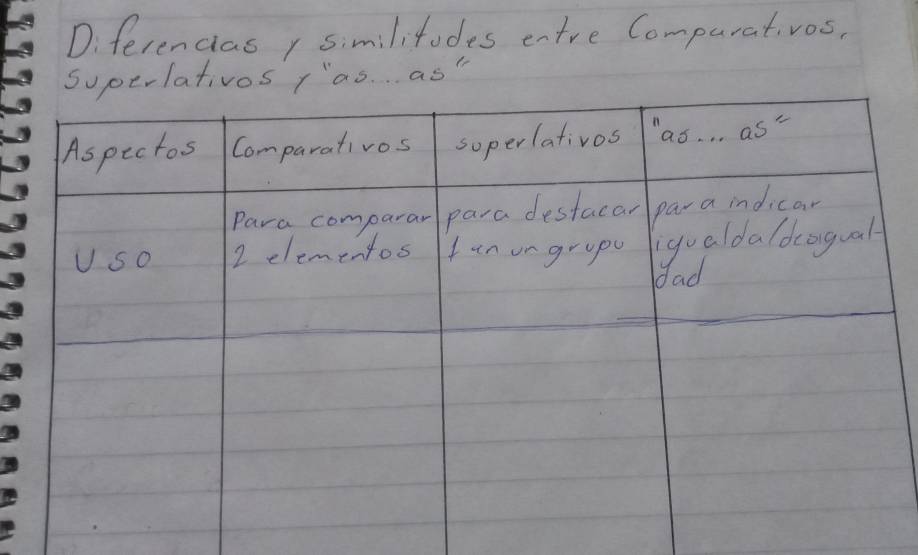 Diferencias y similitudes entre Comparativos,
superlativos y "as... as"
Aspectos Comparativos superlativos "as... as"
Uso
Para comparar
2 elementos
para destacar
1 en un grupo
para indicar
igualda/desigual-
dad